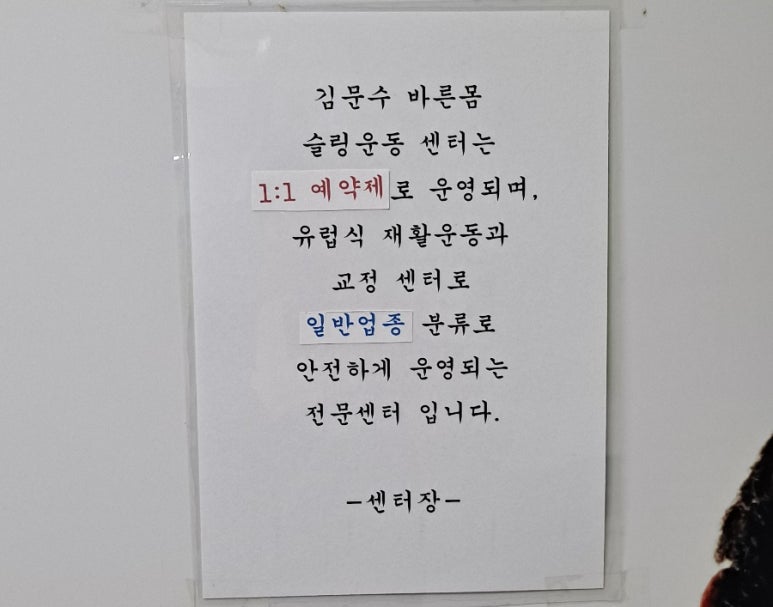 김문수 바른몸
슬링운동 센터는
1:1 예약제로 운영되며,
유럽식 재활운동과
교정 센터로
일반업종 분류로
안전하게 운영되는
전문센터 입니다.
-센터장-